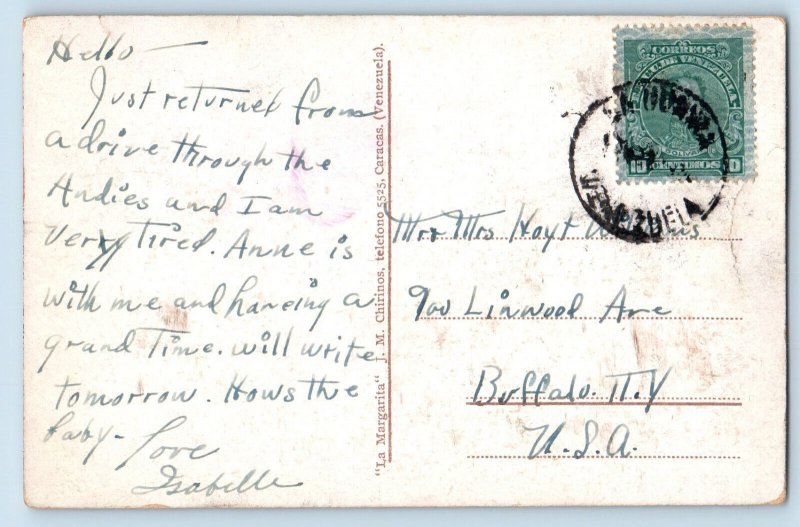 Hello —
Just returned from
a drive through the
Andies and I am
very tired. Anne is
with me and haveing a
grand Time. will write
tomorrow. Hows the
baby – Love
Isabelle
"La Margarita" J. M. Chirinos, telefono 5525, Caracas. (Venezuela).
CORREOS
EE. UU. DE VENEZUELA
BOLIVAR
CENTIMOS
VENEZUELA
Mr & Mrs Hoyt
900 Linwood Ave
Buffalo. N.Y
U.S.A.